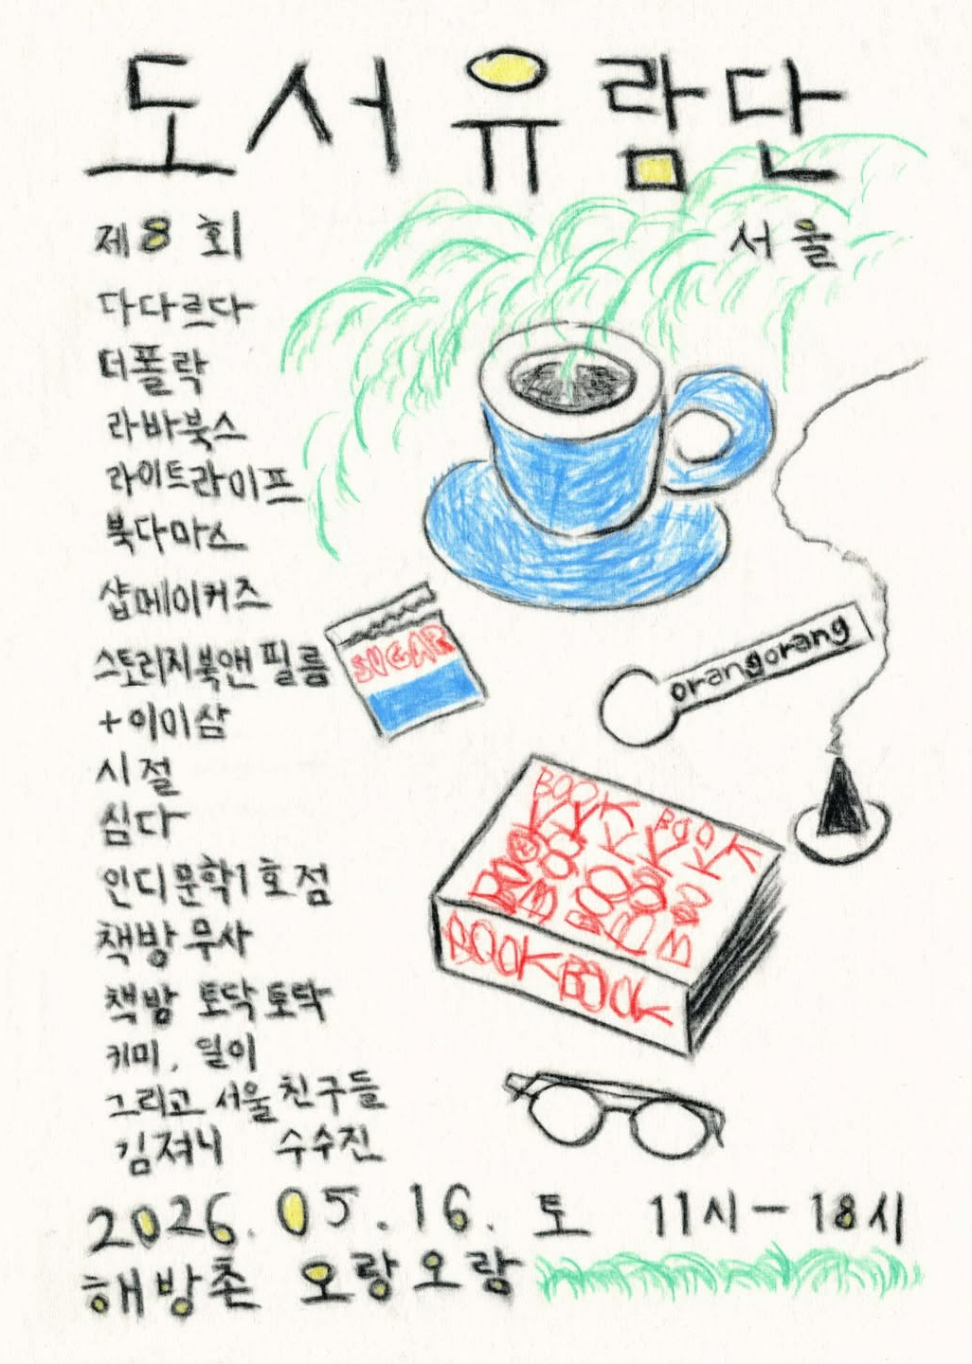 도서유람단
제8회
서울
다다르다
더폴락
라바북스
라이트라이프
북다마스
샵메이커즈
스토리지북앤필름
+이미삼
시절
심다
인디문학1호점
책방무사
책방 토닥토닥
키미, 일이
그리고 서울 친구들
김져니 수수진
SUGAR
orangorang
BOOK BOOK
BOOKBOOK
2026. 05. 16. 토 11시-18시
해방촌 오랑오랑